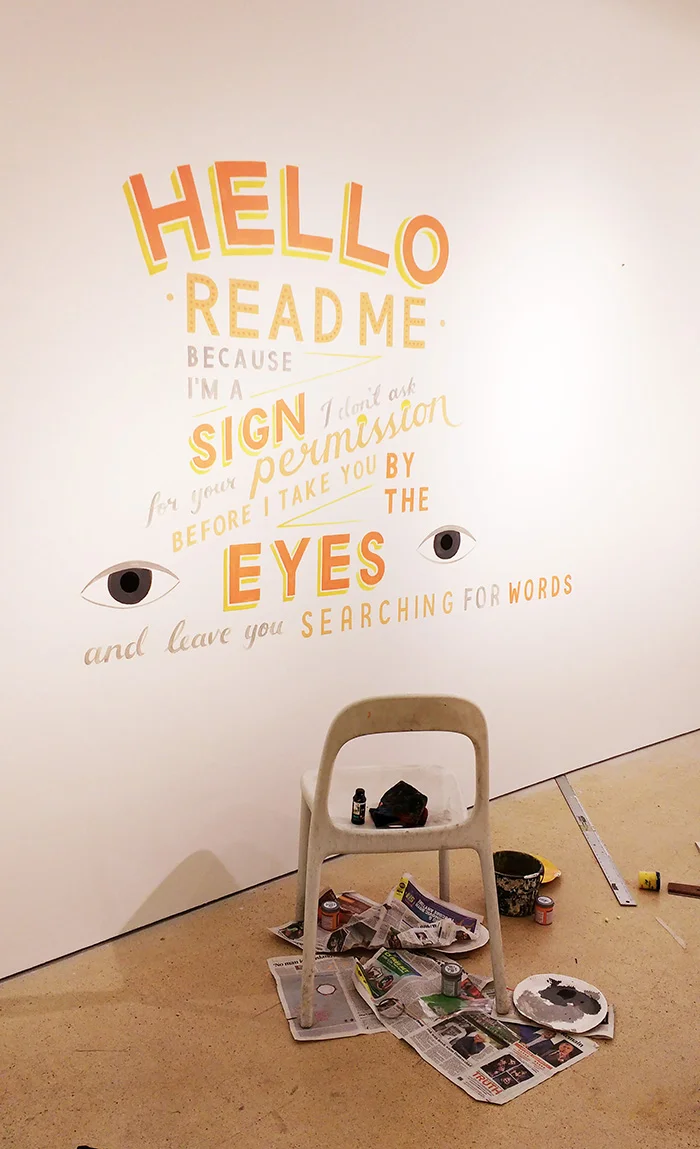 HELLO
READ ME
BECAUSE
I'M A
SIGN I don't ask
for your permission
BEFORE I TAKE YOU BY
THE
EYES
and leave you SEARCHING FOR WORDS
TRUTH